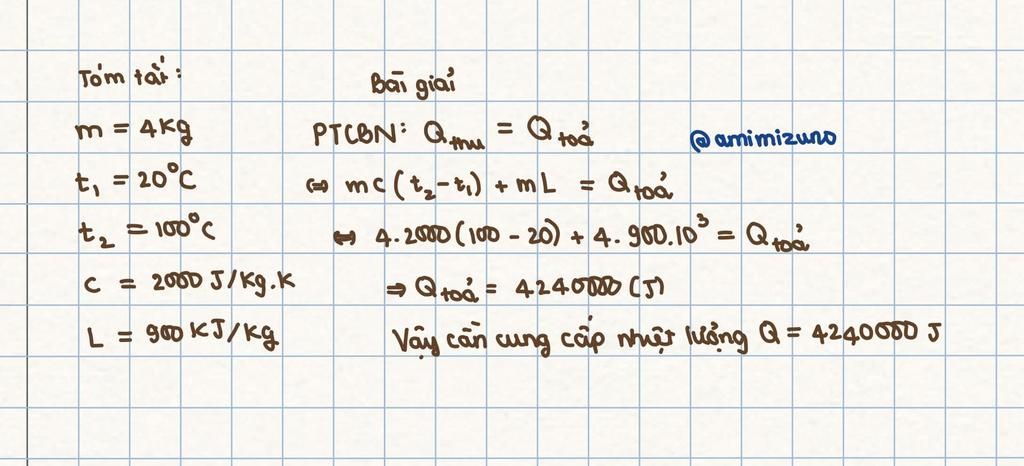 Tóm tắt:
m = 4Kg
t₁ = 20°C
t₂ = 100°C
c = 2000 J/Kg.K
L = 900 KJ/Kg
Bài giải
PTCBN: Q thu = Q toả
@amimizuno
⇔ mc(t₂-t₁) + mL = Q toả
⇔ 4.2000(100 - 20) + 4.900.10³ = Q toả
⇒ Q toả = 4240000 (J)
Vậy cần cung cấp nhiệt lượng Q = 4240000 J